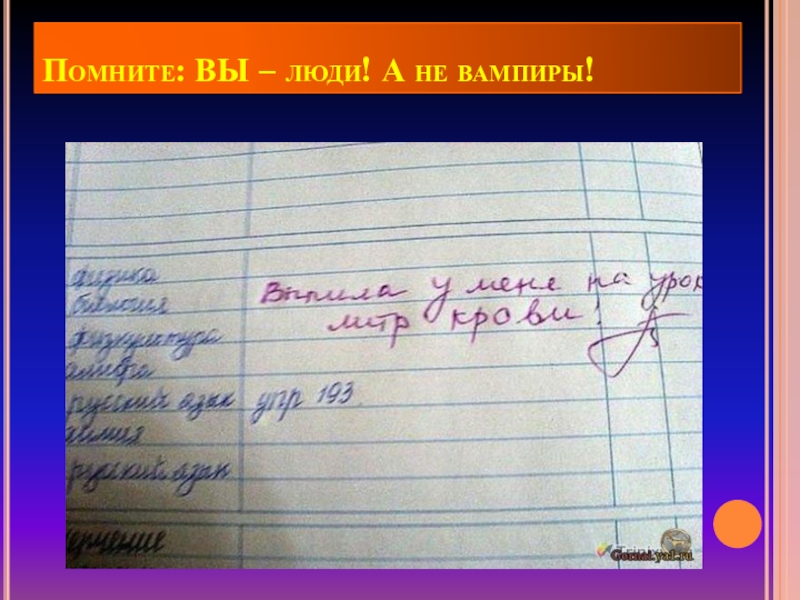 Помните: ВЫ – люди! А не вампиры!
физика
Выпила у меня на урок
биология
литр крови!
физкультура
алгебра
русский язык упр 193
химия
русский язык
черчение